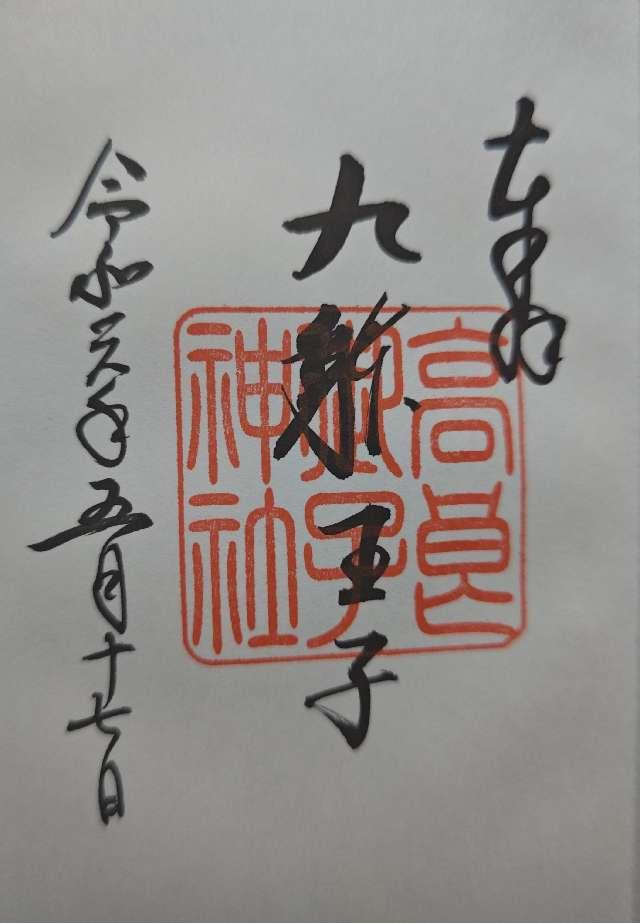 奉拝
九躰王子
令和六年五月十七日
高良
御子
神社